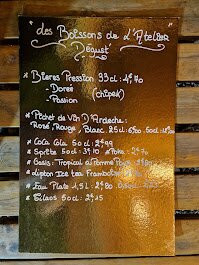 "Les Boissons de L'Atelier
Dégust'"
* Bières Pression 33cl : 4€70
- Dorée
- Passion (chipek)
* Pichet de Vin D'Ardeche :
Rosé, Rouge, Blanc 25cl : 6€80 50cl :
* Coca Cola 50cl : 2€99
* Sprite 50cl : 3€10
* Oasis : Tropical ou Pomme
* Lipton Ice tea Framboise
* Eau Plate 1,5L : 2€80
* 50cl : 2€15